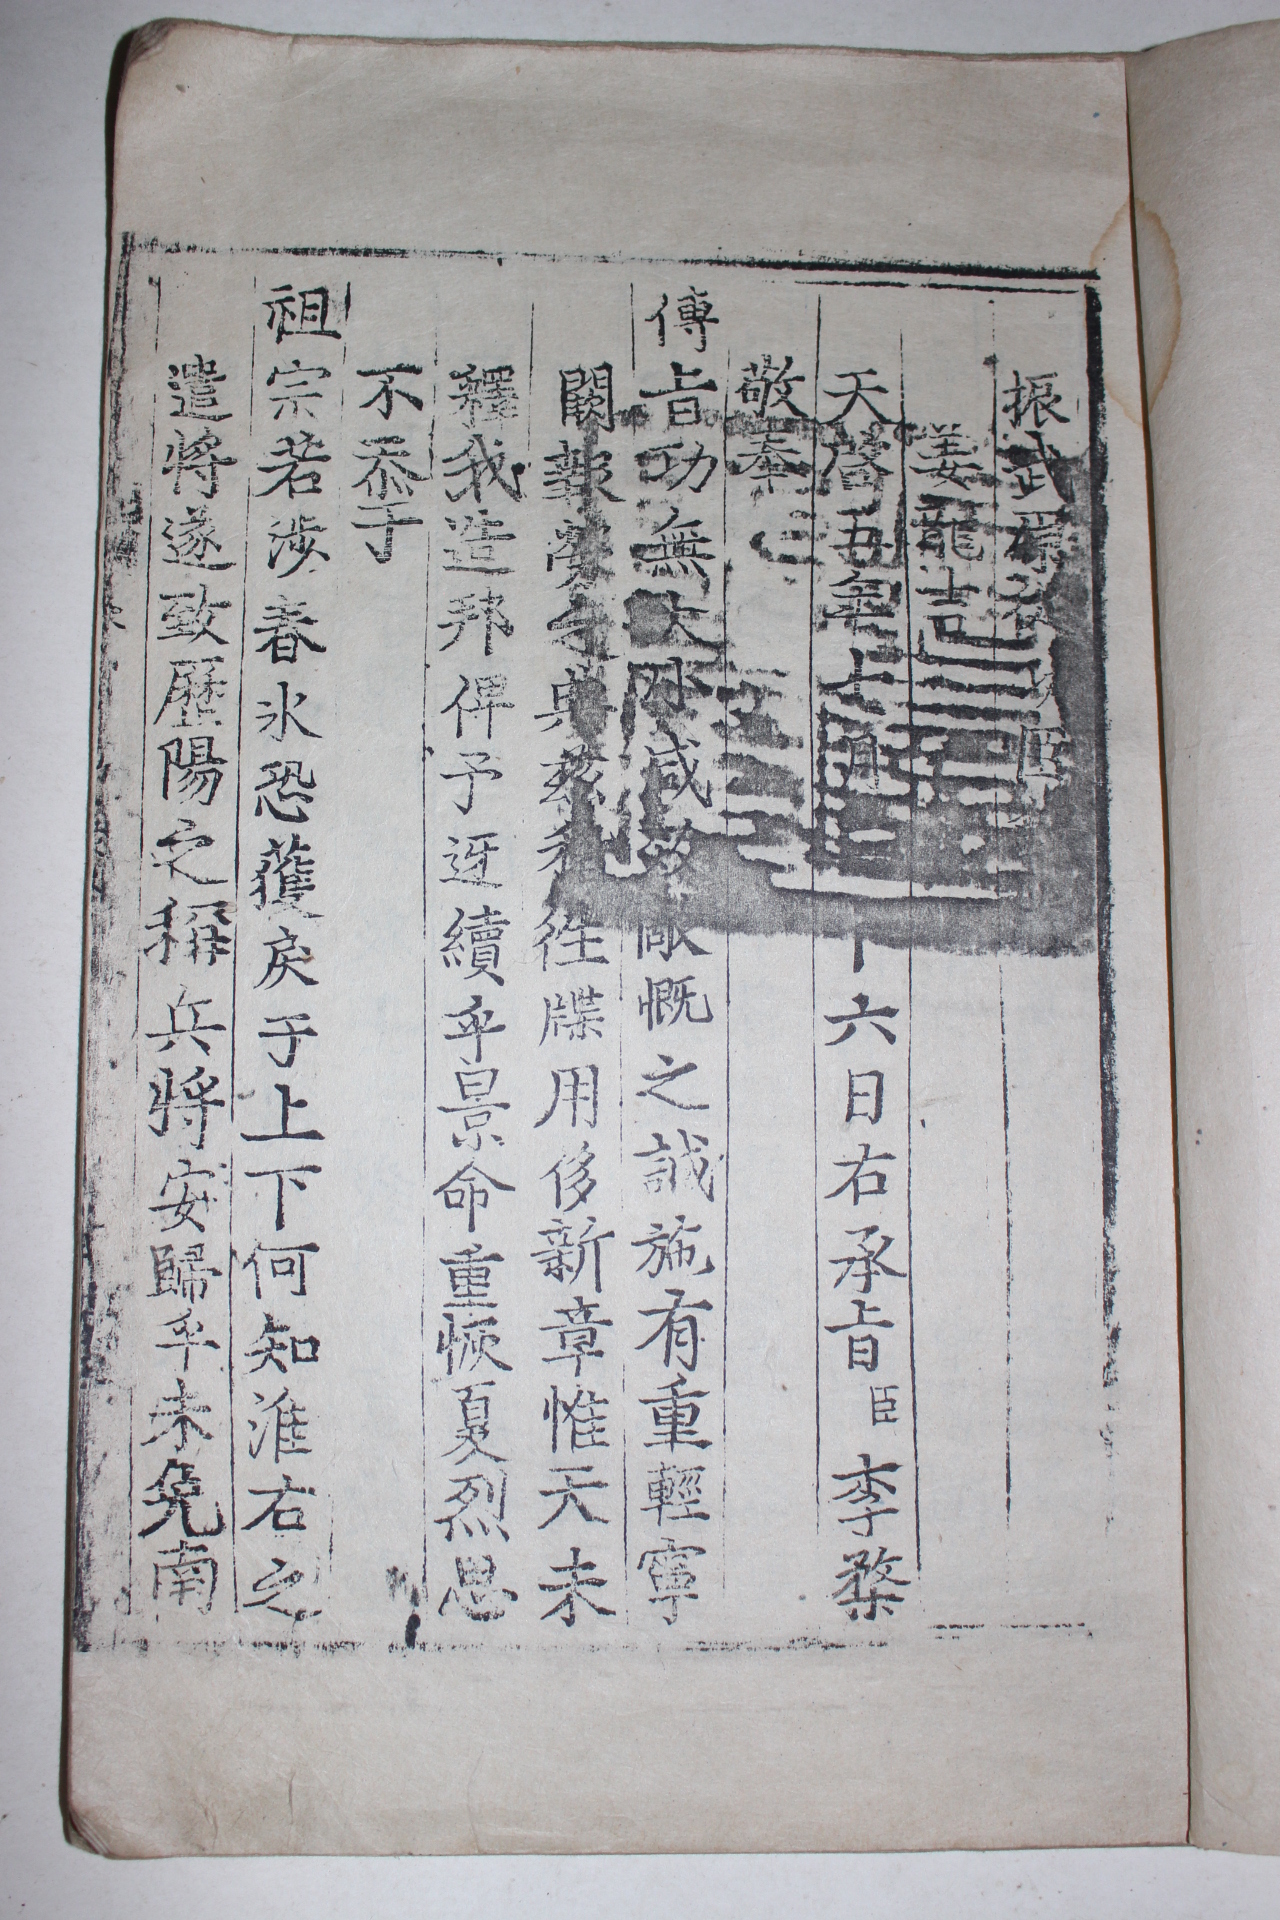 振武原從功臣
姜龍吉
天啓五年十一月二十六日右承旨臣李楘
敬奉
傳旨功無大小咸效敵愾之誠施有重輕寧
闕報勞之典玆稽往牒用侈新章惟天未
釋我造邦俾予迓續乎景命重恢夏烈思
不忝于
祖宗若涉春氷恐獲戾于上下何知淮右之
遣將遂致歷陽之稱兵將安歸乎未免南